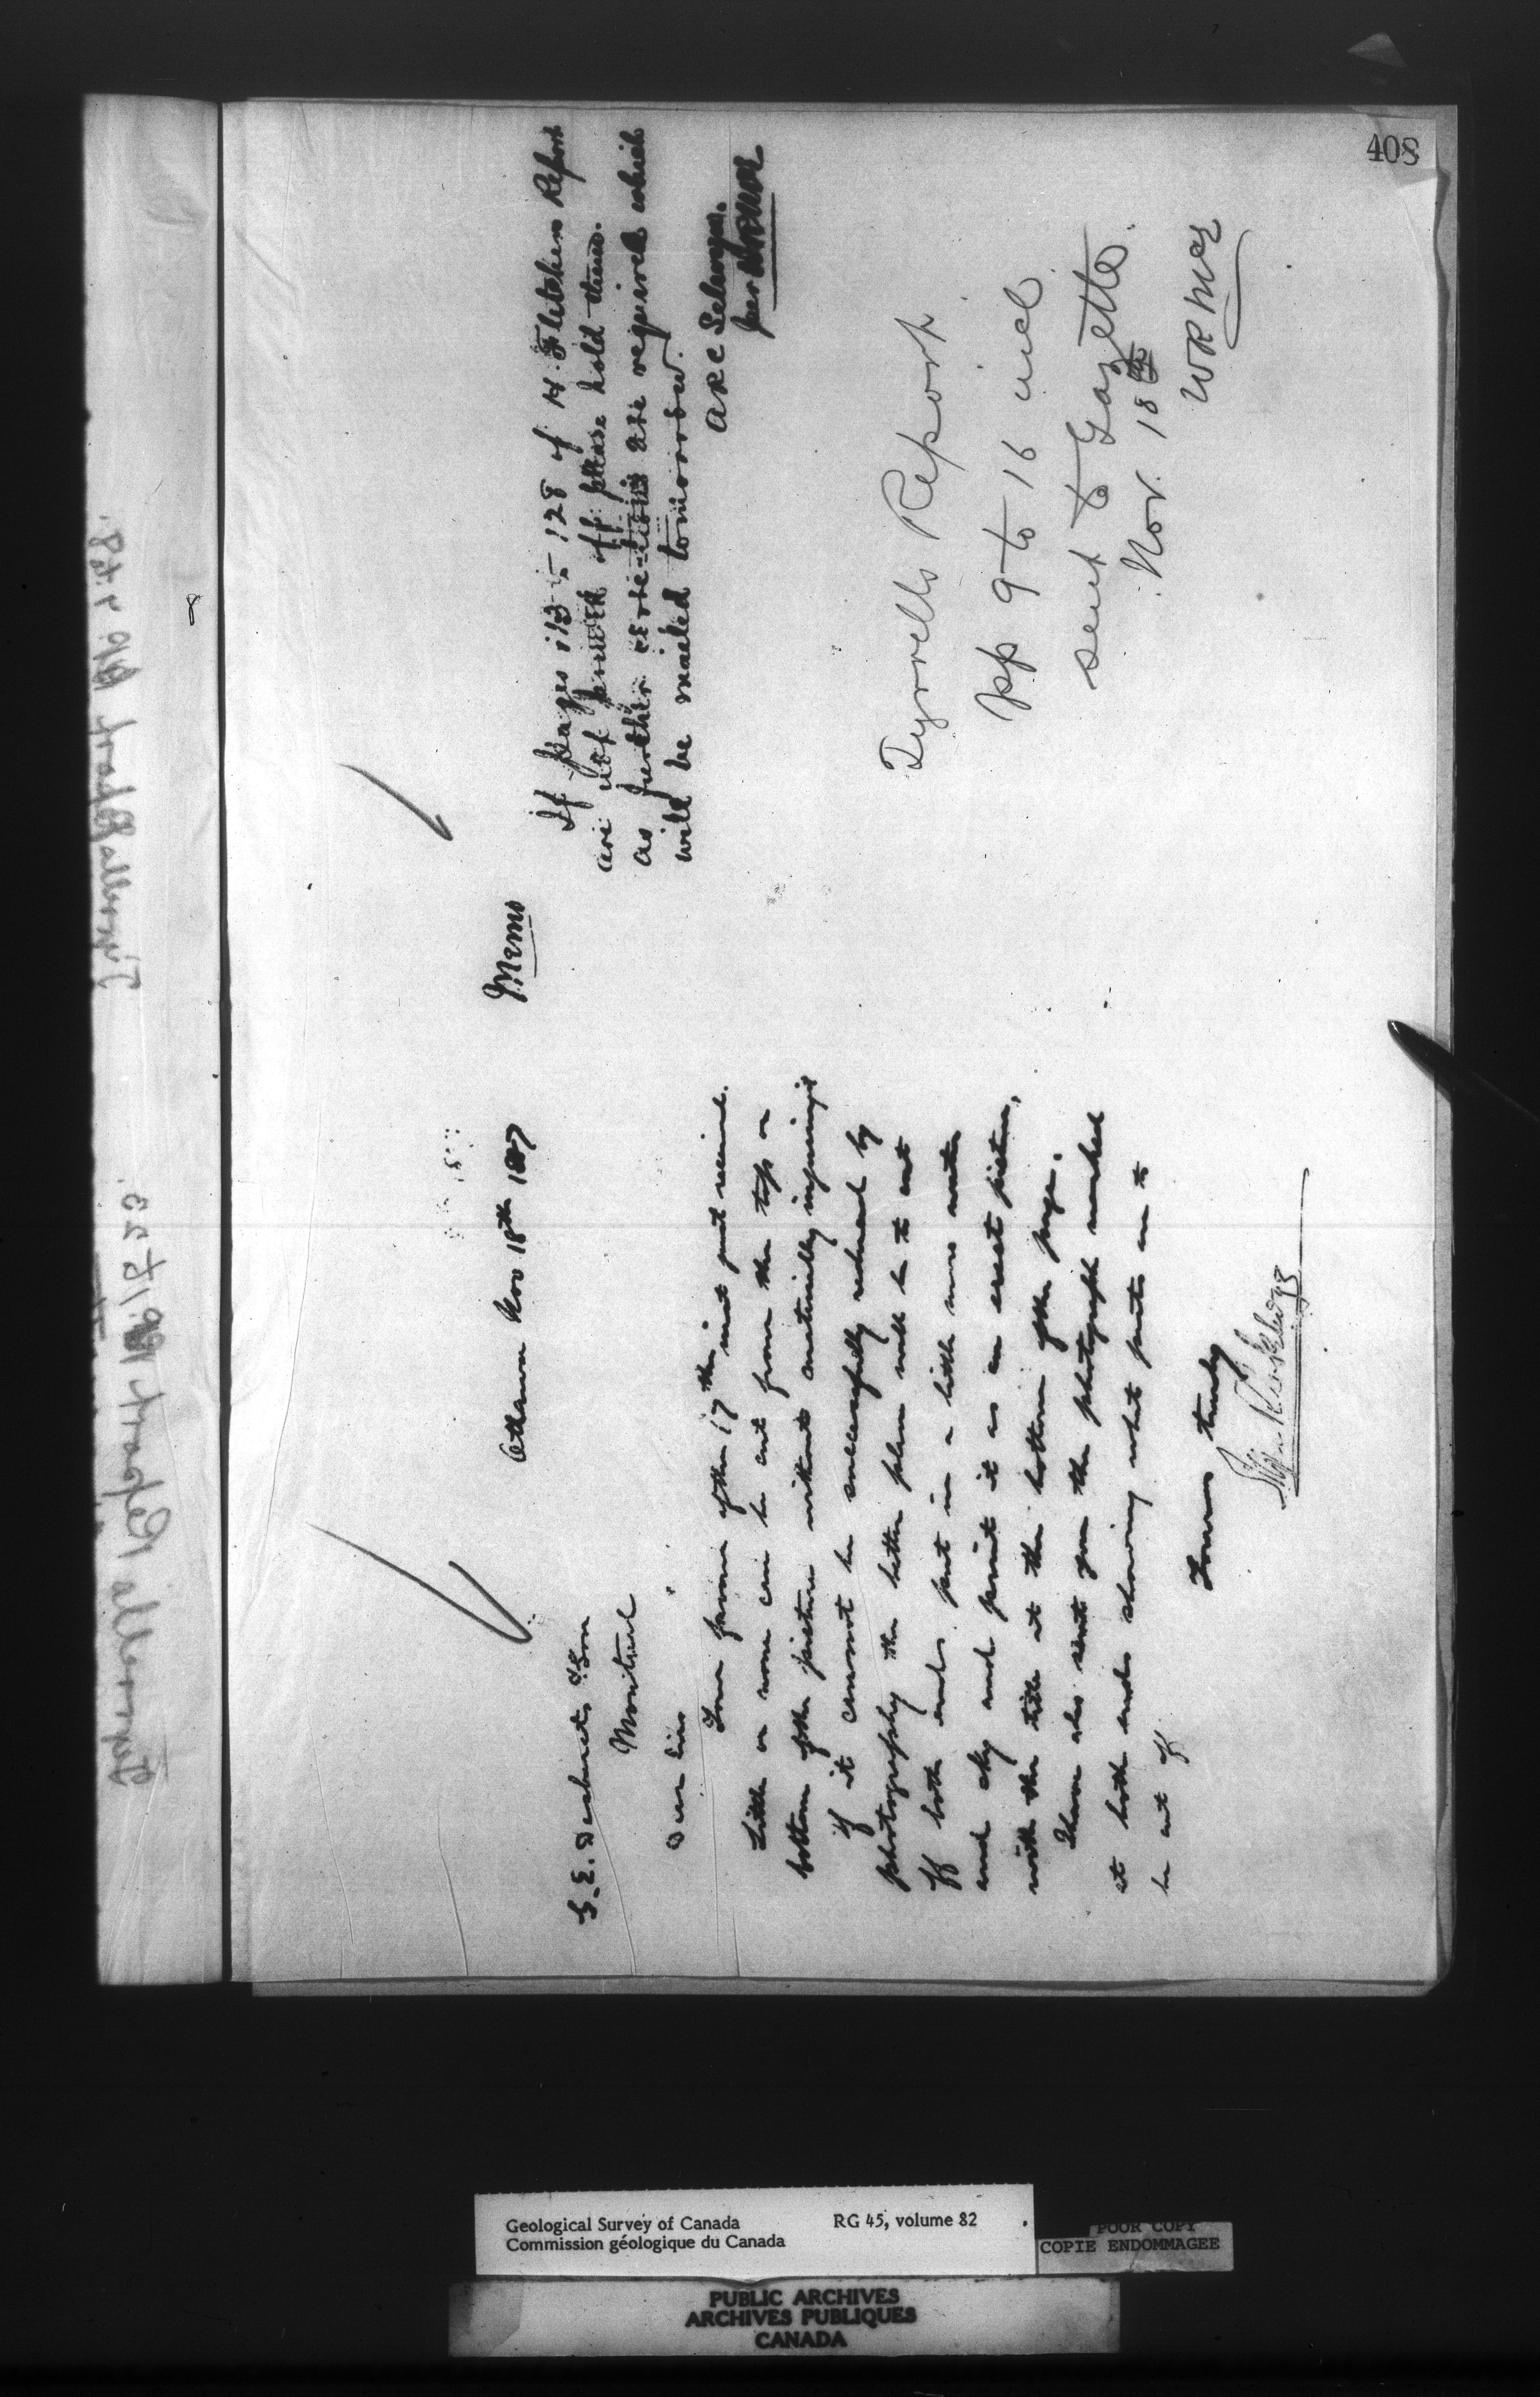 408
Ottawa Nov 18th 1887
G. E. Desbarats & Son
Montreal
Dear Sirs
Your favour of the 17th inst just received.
Little or none can be cut from the top or
bottom of the picture without materially injuring it
if it cannot be successfully reduced by
photography the better plan will be to cut
off both ends put in a little more water
and sky and print it as an erect picture,
with the title at the bottom of the page.
I have also sent you the photograph marked
at both ends showing what parts are to
be cut off
Yours truly
Memo
If pages 113 - 128 of H. Fletchers Report
are not printed off please hold them.
as further corrections are required which
will be mailed tomorrow.
ARC Selwyn.
per
Tyrrells Report
pp 9 to 16 incl
sent to Gazette
Nov. 18th
WR McE
Geological Survey of Canada
RG 45, volume 82
Commission géologique du Canada
POOR COPY
COPIE ENDOMMAGEE
PUBLIC ARCHIVES
ARCHIVES PUBLIQUES
CANADA